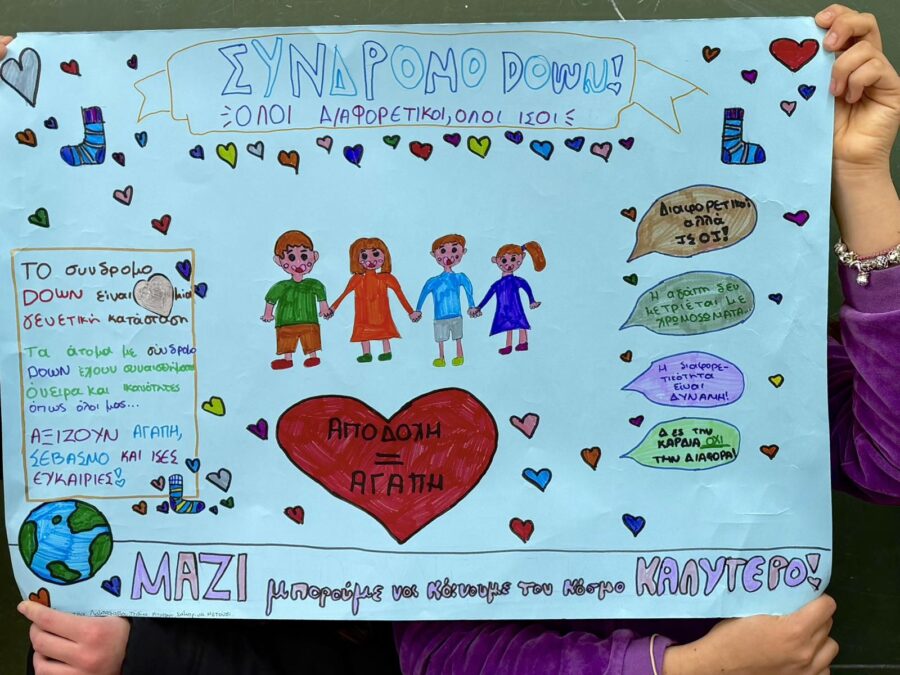 ΣΥΝΔΡΟΜΟ DOWN!
ΟΛΟΙ ΔΙΑΦΟΡΕΤΙΚΟΙ, ΟΛΟΙ ΙΣΟΙ
ΤΟ συνδρομο
DOWN είναι μία
γενετική κατάσταση
Τα άτομα με σύνδρομο
DOWN έχουν συναισθήματα
όνειρα και ικανότητες
όπως όλοι μας...
ΑΞΙΖΟΥΝ ΑΓΑΠΗ,
ΣΕΒΑΣΜΟ ΚΑΙ ΙΣΕΣ
ΕΥΚΑΙΡΙΕΣ!
ΑΠΟΔΟΧΗ
=
ΑΓΑΠΗ
ΔιαφορΕΤικοί
αλλά
ΙΣΟΙ!
Η αγάπη δεν
μΕΤΡΙΕΤΑΙ ΜΕ
ΧΡΩΜΟΣΩΜΑΤΑ...
Η διαφορε-
τικότητα
ΕΙΝΑΙ
ΔΥΝΑΜΗ!
Δες την
ΚΑΡΔΙΑ ΟΧΙ
ΤΗΝ ΔΙΑΦΟΡΑ!
ΜΑΖΙ μπορούμε να κάνουμε τον κόσμο ΚΑΛΥΤΕΡΟ!